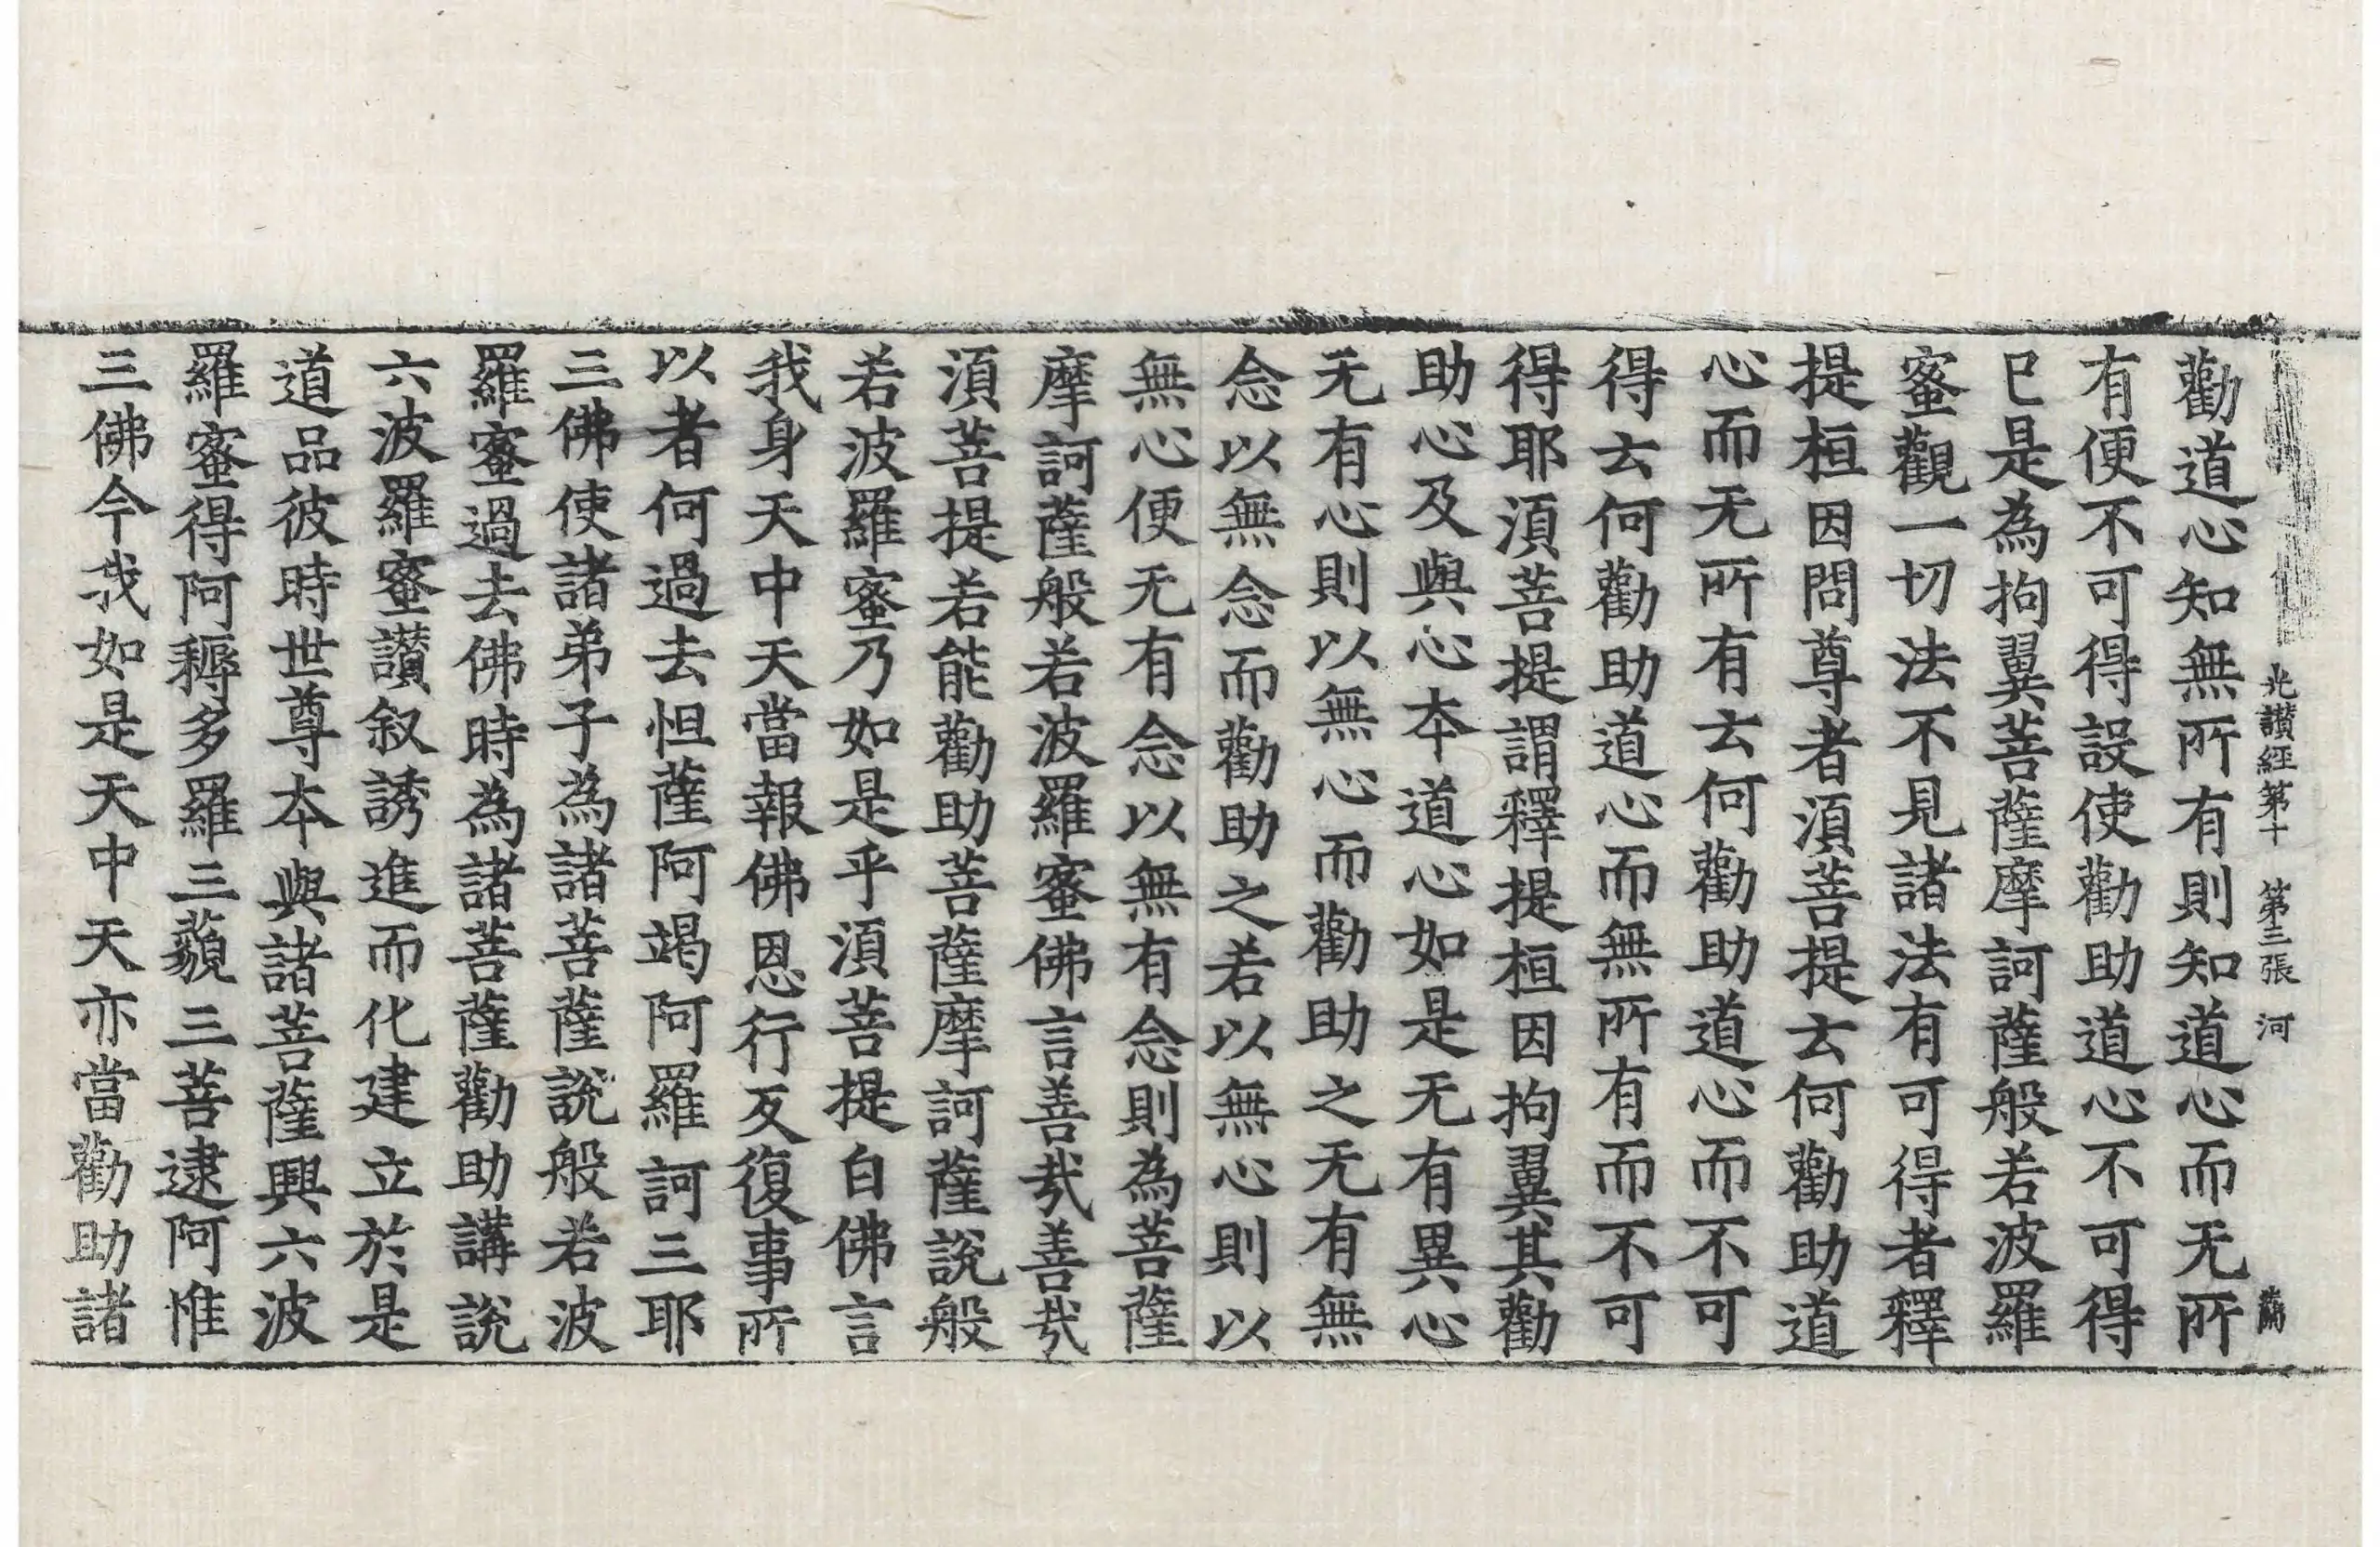 光讚經第十　第三張　河
勸道心知無所有則知道心而无所
有便不可得設使勸助道心不可得
已是為拘翼菩薩摩訶薩般若波羅
蜜觀一切法不見諸法有可得者釋
提桓因問尊者須菩提云何勸助道
心而无所有云何勸助道心而不可
得云何勸助道心而無所有而不可
得耶須菩提謂釋提桓因拘翼其勸
助心及與心本道心如是无有異心
无有心則以無心而勸助之无有無
念以無念而勸助之若以無心則以
無心便无有念以無有念則為菩薩
摩訶薩般若波羅蜜佛言善哉善哉
須菩提若能勸助菩薩摩訶薩說般
若波羅蜜乃如是乎須菩提白佛言
我身天中天當報佛恩行反復事所
以者何過去怛薩阿竭阿羅訶三耶
三佛使諸弟子為諸菩薩說般若波
羅蜜過去佛時為諸菩薩勸助講說
六波羅蜜讚叙誘進而化建立於是
道品彼時世尊本與諸菩薩興六波
羅蜜得阿耨多羅三藐三菩逮阿惟
三佛今我如是天中天亦當勸助諸